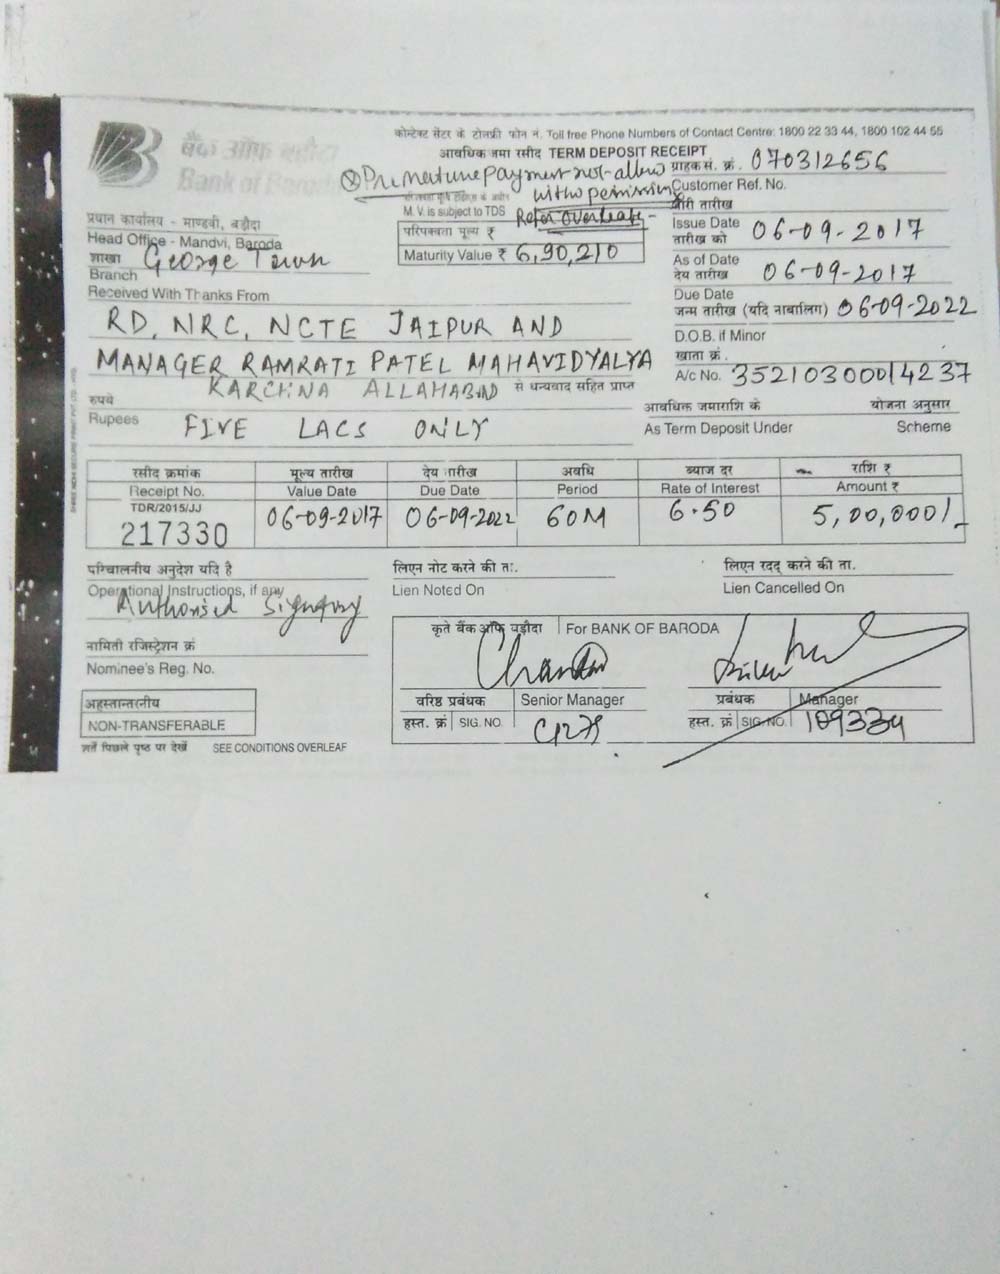 कोन्टेक्ट सेंटर के टोलफ्री फोन नं. Toll free Phone Numbers of Contact Centre: 1800 22 33 44, 1800 102 44 55
बैंक ऑफ बड़ौदा
Bank of Baroda
आवधिक जमा रसीद TERM DEPOSIT RECEIPT
Premature payment not allow
witho permission
Refer overleafe -
M. V. is subject to TDS
परिपक्वता मूल्य ₹
Maturity Value ₹ 6,90,210
ग्राहक सं. क्रं. 070312656
Customer Ref. No.
जारी तारीख
Issue Date 06-09-2017
तारीख को
As of Date 06-09-2017
देय तारीख
Due Date 06-09-2022
जन्म तारीख (यदि नाबालिग)
D.O.B. if Minor
खाता क्रं.
A/c No. 35210300014237
प्रधान कार्यालय - माण्डवी, बड़ौदा
Head Office - Mandvi, Baroda
शाखा George Town
Branch
Received With Thanks From
RD, NRC, NCTE JAIPUR AND
MANAGER RAMRATI PATEL MAHAVIDYALYA
KARCHNA ALLAHABAD से धन्यवाद सहित प्राप्त
रुपये
Rupees FIVE LACS ONLY
आवधिक जमाराशि के योजना अनुसार
As Term Deposit Under Scheme
रसीद क्रमांक मूल्य तारीख देय तारीख अवधि ब्याज दर राशि ₹
Receipt No. Value Date Due Date Period Rate of Interest Amount ₹
TDR/2015/JJ
217330 06-09-2017 06-09-2022 60M 6.50 5,00,000/-
परिचालनीय अनुदेश यदि है लिएन नोट करने की ता. लिएन रदद् करने की ता.
Operational Instructions, if any Lien Noted On Lien Cancelled On
Authorised Signatory
नामिती रजिस्ट्रेशन क्रं
Nominee's Reg. No.
कृते बैंक ऑफ बड़ौदा For BANK OF BARODA
वरिष्ठ प्रबंधक Senior Manager प्रबंधक Manager
हस्त. क्रं SIG. NO. हस्त. क्रं SIG. NO. 109334
अहस्तान्तरनीय
NON-TRANSFERABLE
शर्तें पिछले पृष्ठ पर देखें SEE CONDITIONS OVERLEAF